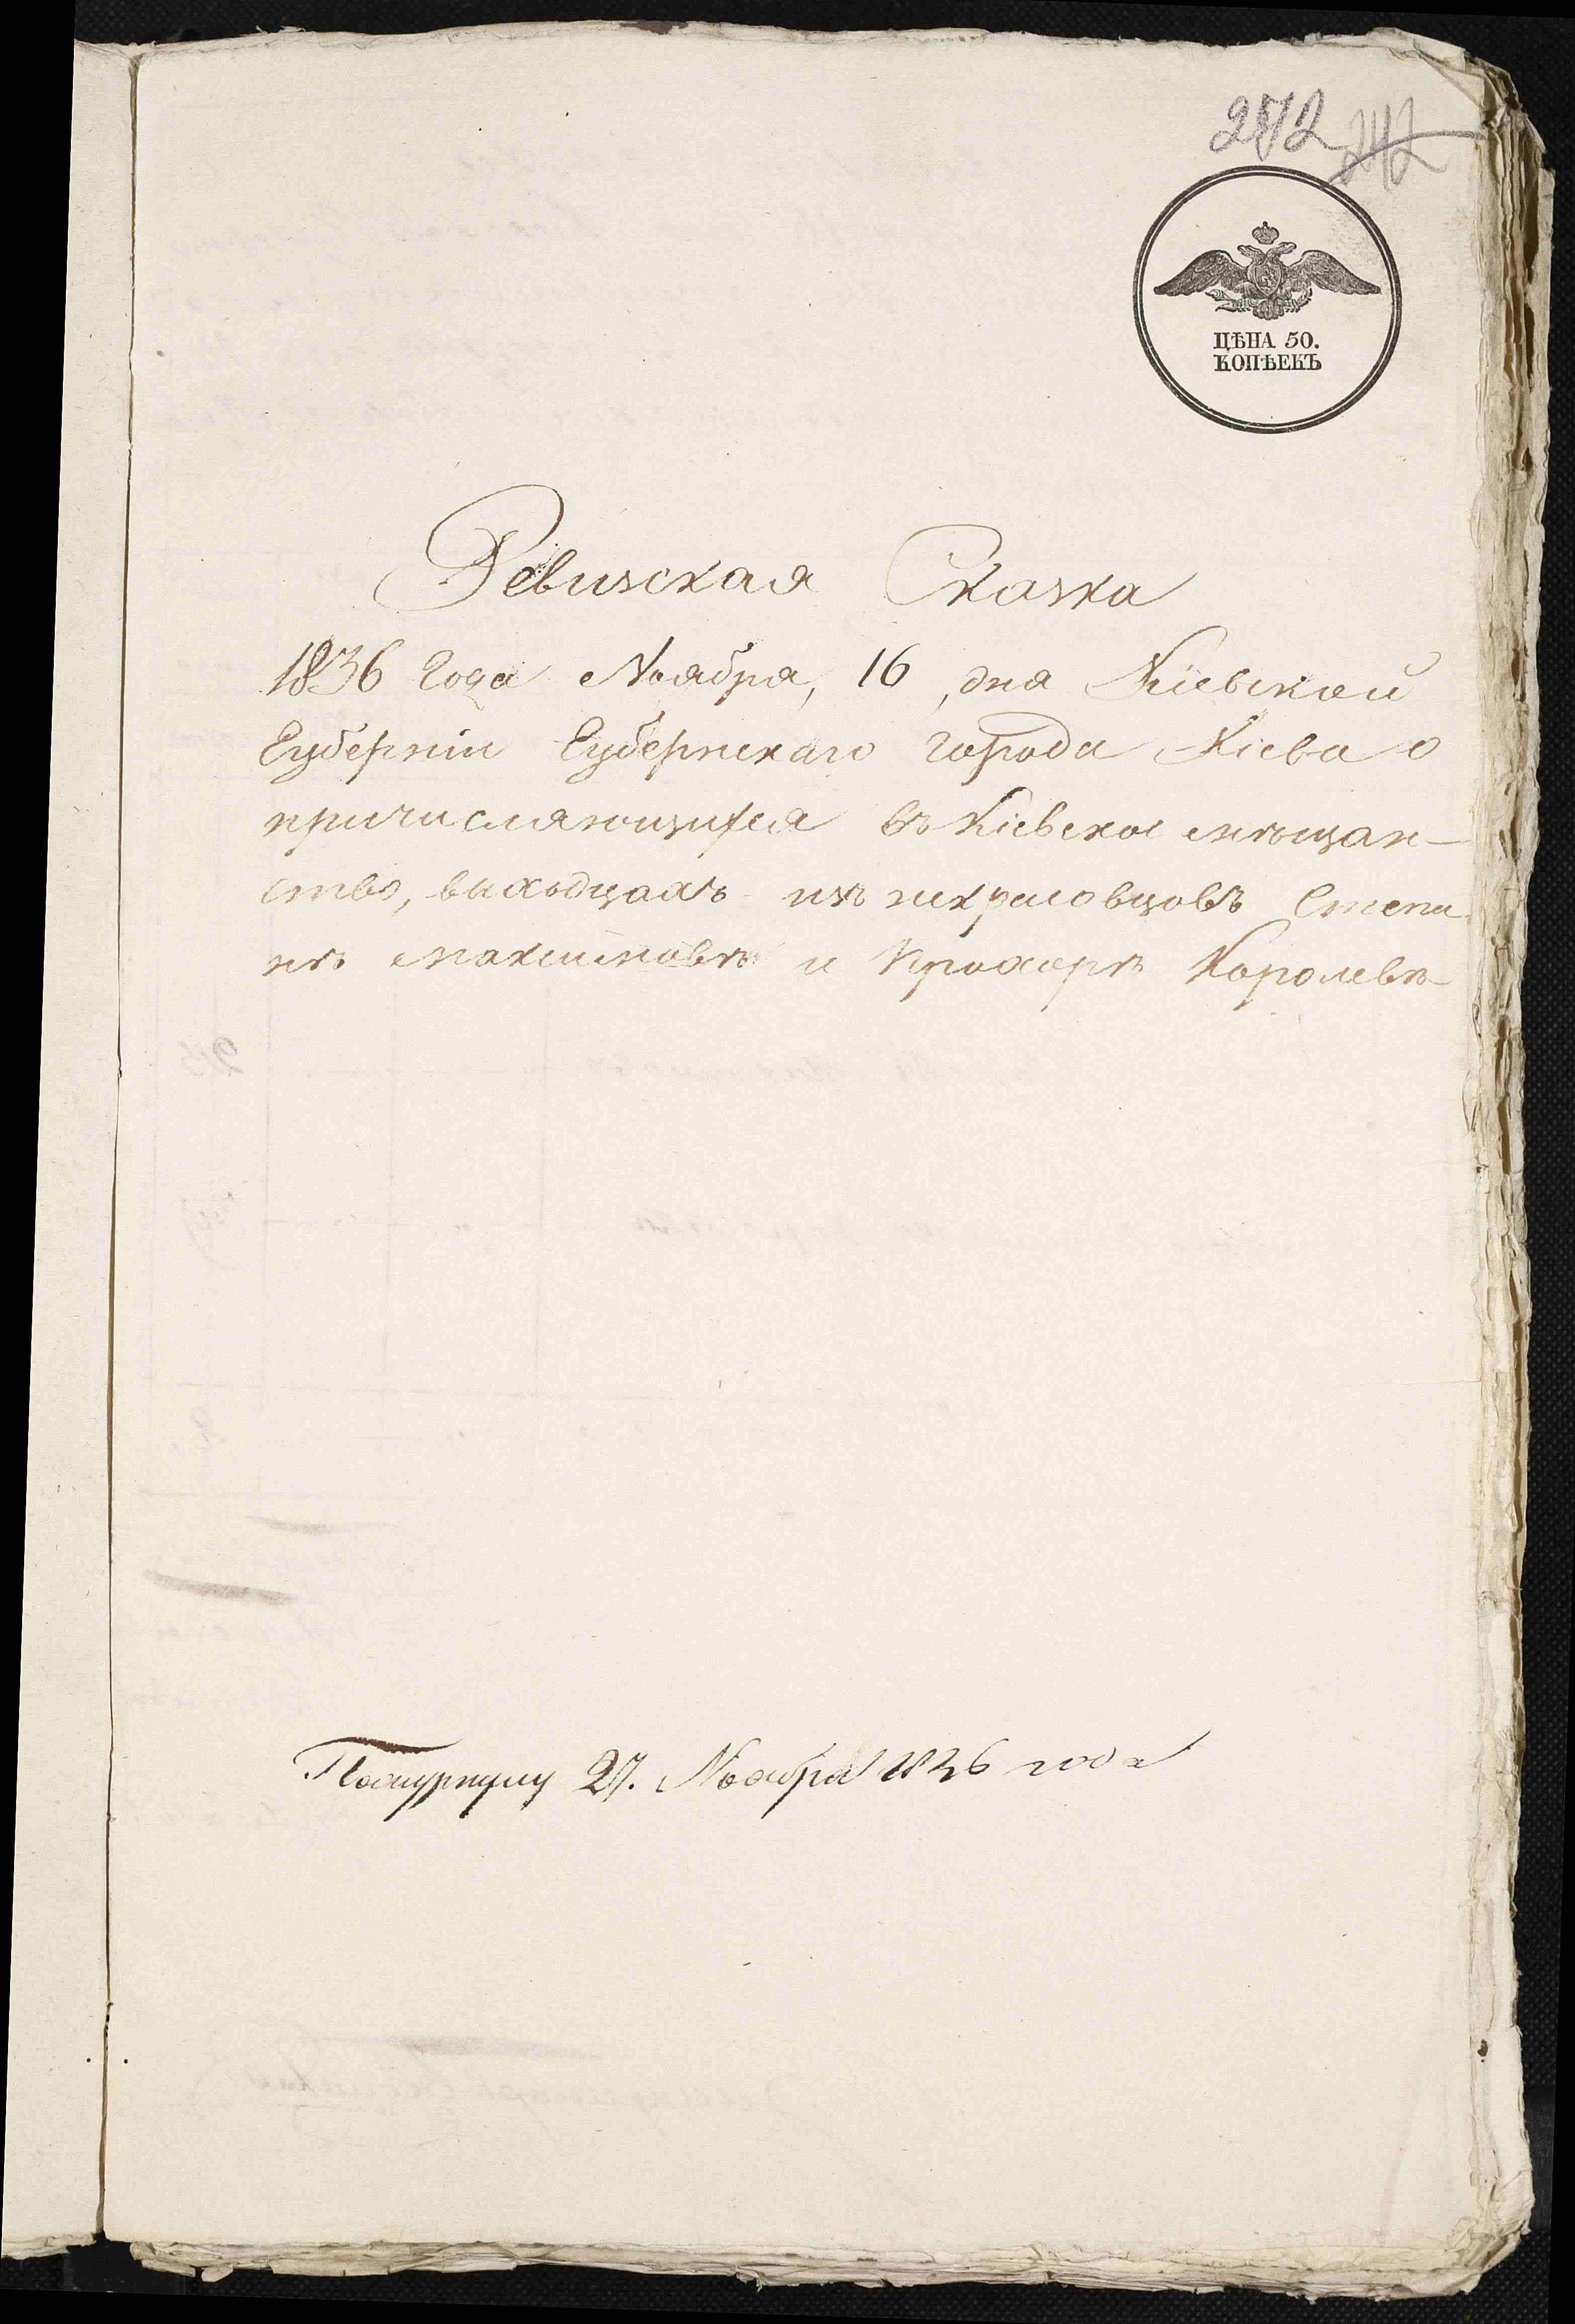 272 242
ЦѢНА 50.
КОПѢЕКЪ
Ревизская Сказка
1836 Года Ноября, 16, дня Кіевской
Губерніи Губернскаго города Кіева о
причисляющихся въ Кіевское мѣщан-
ство, выходцахъ изъ некрасовцовъ Степа
нѣ Максимовѣ и Прохорѣ Королевѣ
27. Ноября 1836 года